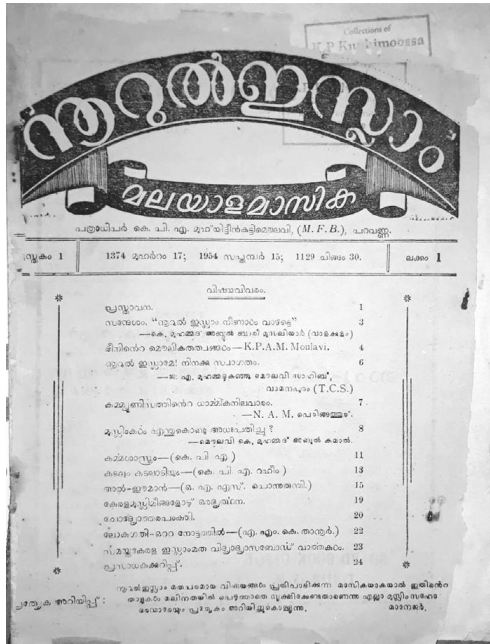 Collections of
K.P Kunhimoossa
നൂറുൽഇസ്ലാം
മലയാളമാസിക
പത്രാധിപർ കെ. പി. എ. മുഹ്‌യിദ്ദീൻകുട്ടിമൌലവി, (M. F. B.), പറവണ്ണ.
സ്തകം 1
1374 മുഹർറം 17; 1954 സപ്തമ്പർ 15; 1129 ചിങ്ങം 30.
ലക്കം 1
വിഷയവിവരം.
പ്രസ്താവന. 1
സന്ദേശം. “നൂറുൽ ഇസ്ലാം നീണാൾ വാഴട്ടെ” 3
—കെ. മുഹമ്മദ് അബ്ദുൽ ബാരി മുസലിയാർ (വാളക്കുളം)
ദീനിൻെറ മൌലികതത്വങ്ങൾ—K.P.A.M. Moulavi. 4
നൂറുൽ ഇസ്ലാമേ! നിനക്കു സ്വാഗതം. 6
മുഹമ്മദുകുഞ്ഞു മൌലവി സാഹിബ്,
വാമനപുരം (T.C.S.)
കമ്മ്യൂണിസത്തിൻെറ ധാർമ്മികനിലവാരം. 7
—N. A. M. പെരിങ്ങത്തൂർ.
മുസ്ലിംകൾ എന്തുകൊണ്ടു അധഃപതിച്ചു? 8
—മൌലവി കെ. മുഹമ്മദ് അബുൽ കമാൽ.
കർമ്മശാസ്ത്രം—(കെ. പി. എ) 11
കടലും കടലാടിയും—(കെ. പി. എ. റഹീം) 13
അൽ-ഈമാൻ— 15
കേരളമുസ്ലിമീങ്ങളോട് ഒരഭ്യർത്ഥന. 19
ചോദ്യോത്തരപംക്തി. 20
ലോകഗതി-ഒററ നോട്ടത്തിൽ—(എ. എം. കെ. താനൂർ.) 22
സമസ്തകേരള ഇസ്ലാംമത വിദ്യാഭ്യാസബോഡ് വാർത്തകൾ. 23
പ്രസാധകക്കുറിപ്പ്. 24
പ്രത്യേക അറിയിപ്പ് :
നൂറുൽഇസ്ലാം മതപരമായ വിഷയങ്ങൾ പ്രതിപാദിക്കുന്ന മാസികയാകയാൽ ഇതിൻെറ
താളുകൾ മലിനതയിൽ പെടുത്താതെ സൂക്ഷിക്കേണ്ടതാണെന്നു എല്ലാ മുസ്ലിംസഹോ
ദരന്മാരേയും പ്രത്യേകം അറിയിച്ചുകൊള്ളുന്നു. മാനേജർ.